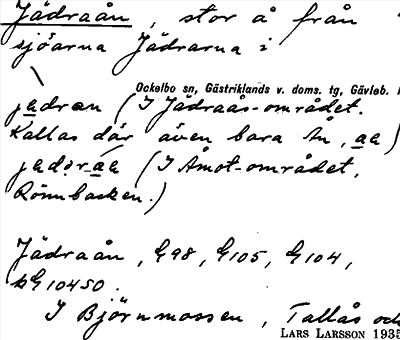 Jädraån, stor å från
sjöarna Jädrarna i
Ockelbo sn, Gästriklands v. doms. tg, Gävleb.
jadran (I Jädraås-området.
Kallas där även bara Ån, aa)
(I Åmot-området,
Rönnbacken.)
Jädraån, G98, G105, G104,
bG10450.
I Björnmossen, Tallås och
LARS LARSSON 1935